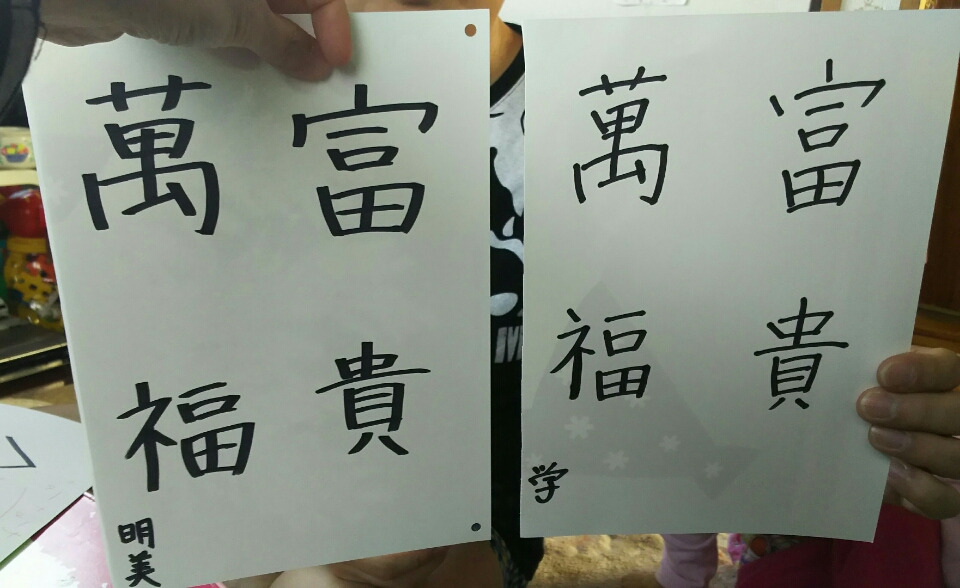 富貴
萬福
明美
富貴
萬福
学